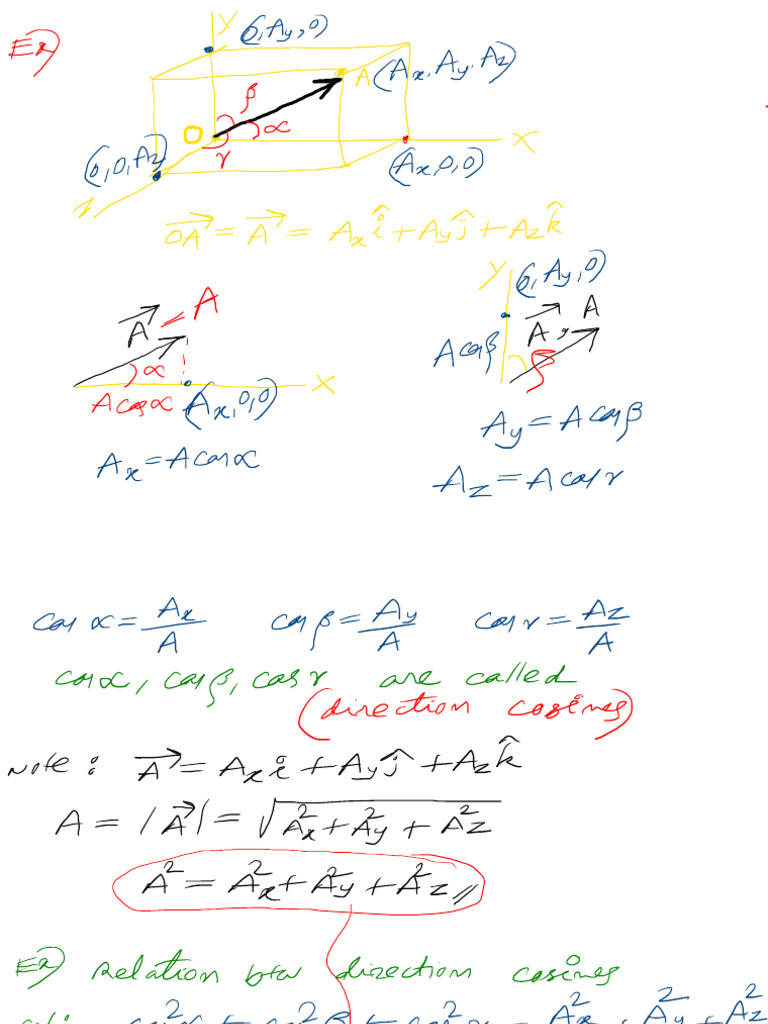 Ex)
Y (0, Ay, 0)
A (Ax, Ay, Az)
β
O α
(0,0,Az) γ X
(Ax,0,0)
Z
OA→ = A→ = Ax î + Ay ĵ + Az k̂
Y (0, Ay, 0)
A→ A
A→ A
α A cosβ β
X
A cosα (Ax,0,0)
Ay = A cosβ
Ax = A cosα
Az = A cosγ
cosα = Ax/A cosβ = Ay/A cosγ = Az/A
cosα, cosβ, cosγ are called
(direction cosines)
Note: A→ = Ax î + Ay ĵ + Az k̂
A = |A→| = √(Ax² + Ay² + Az²)
A² = Ax² + Ay² + Az² //
Ex) Relation btw direction cosines
cos²α + cos²β + cos²γ = Ax² + Ay² + Az²